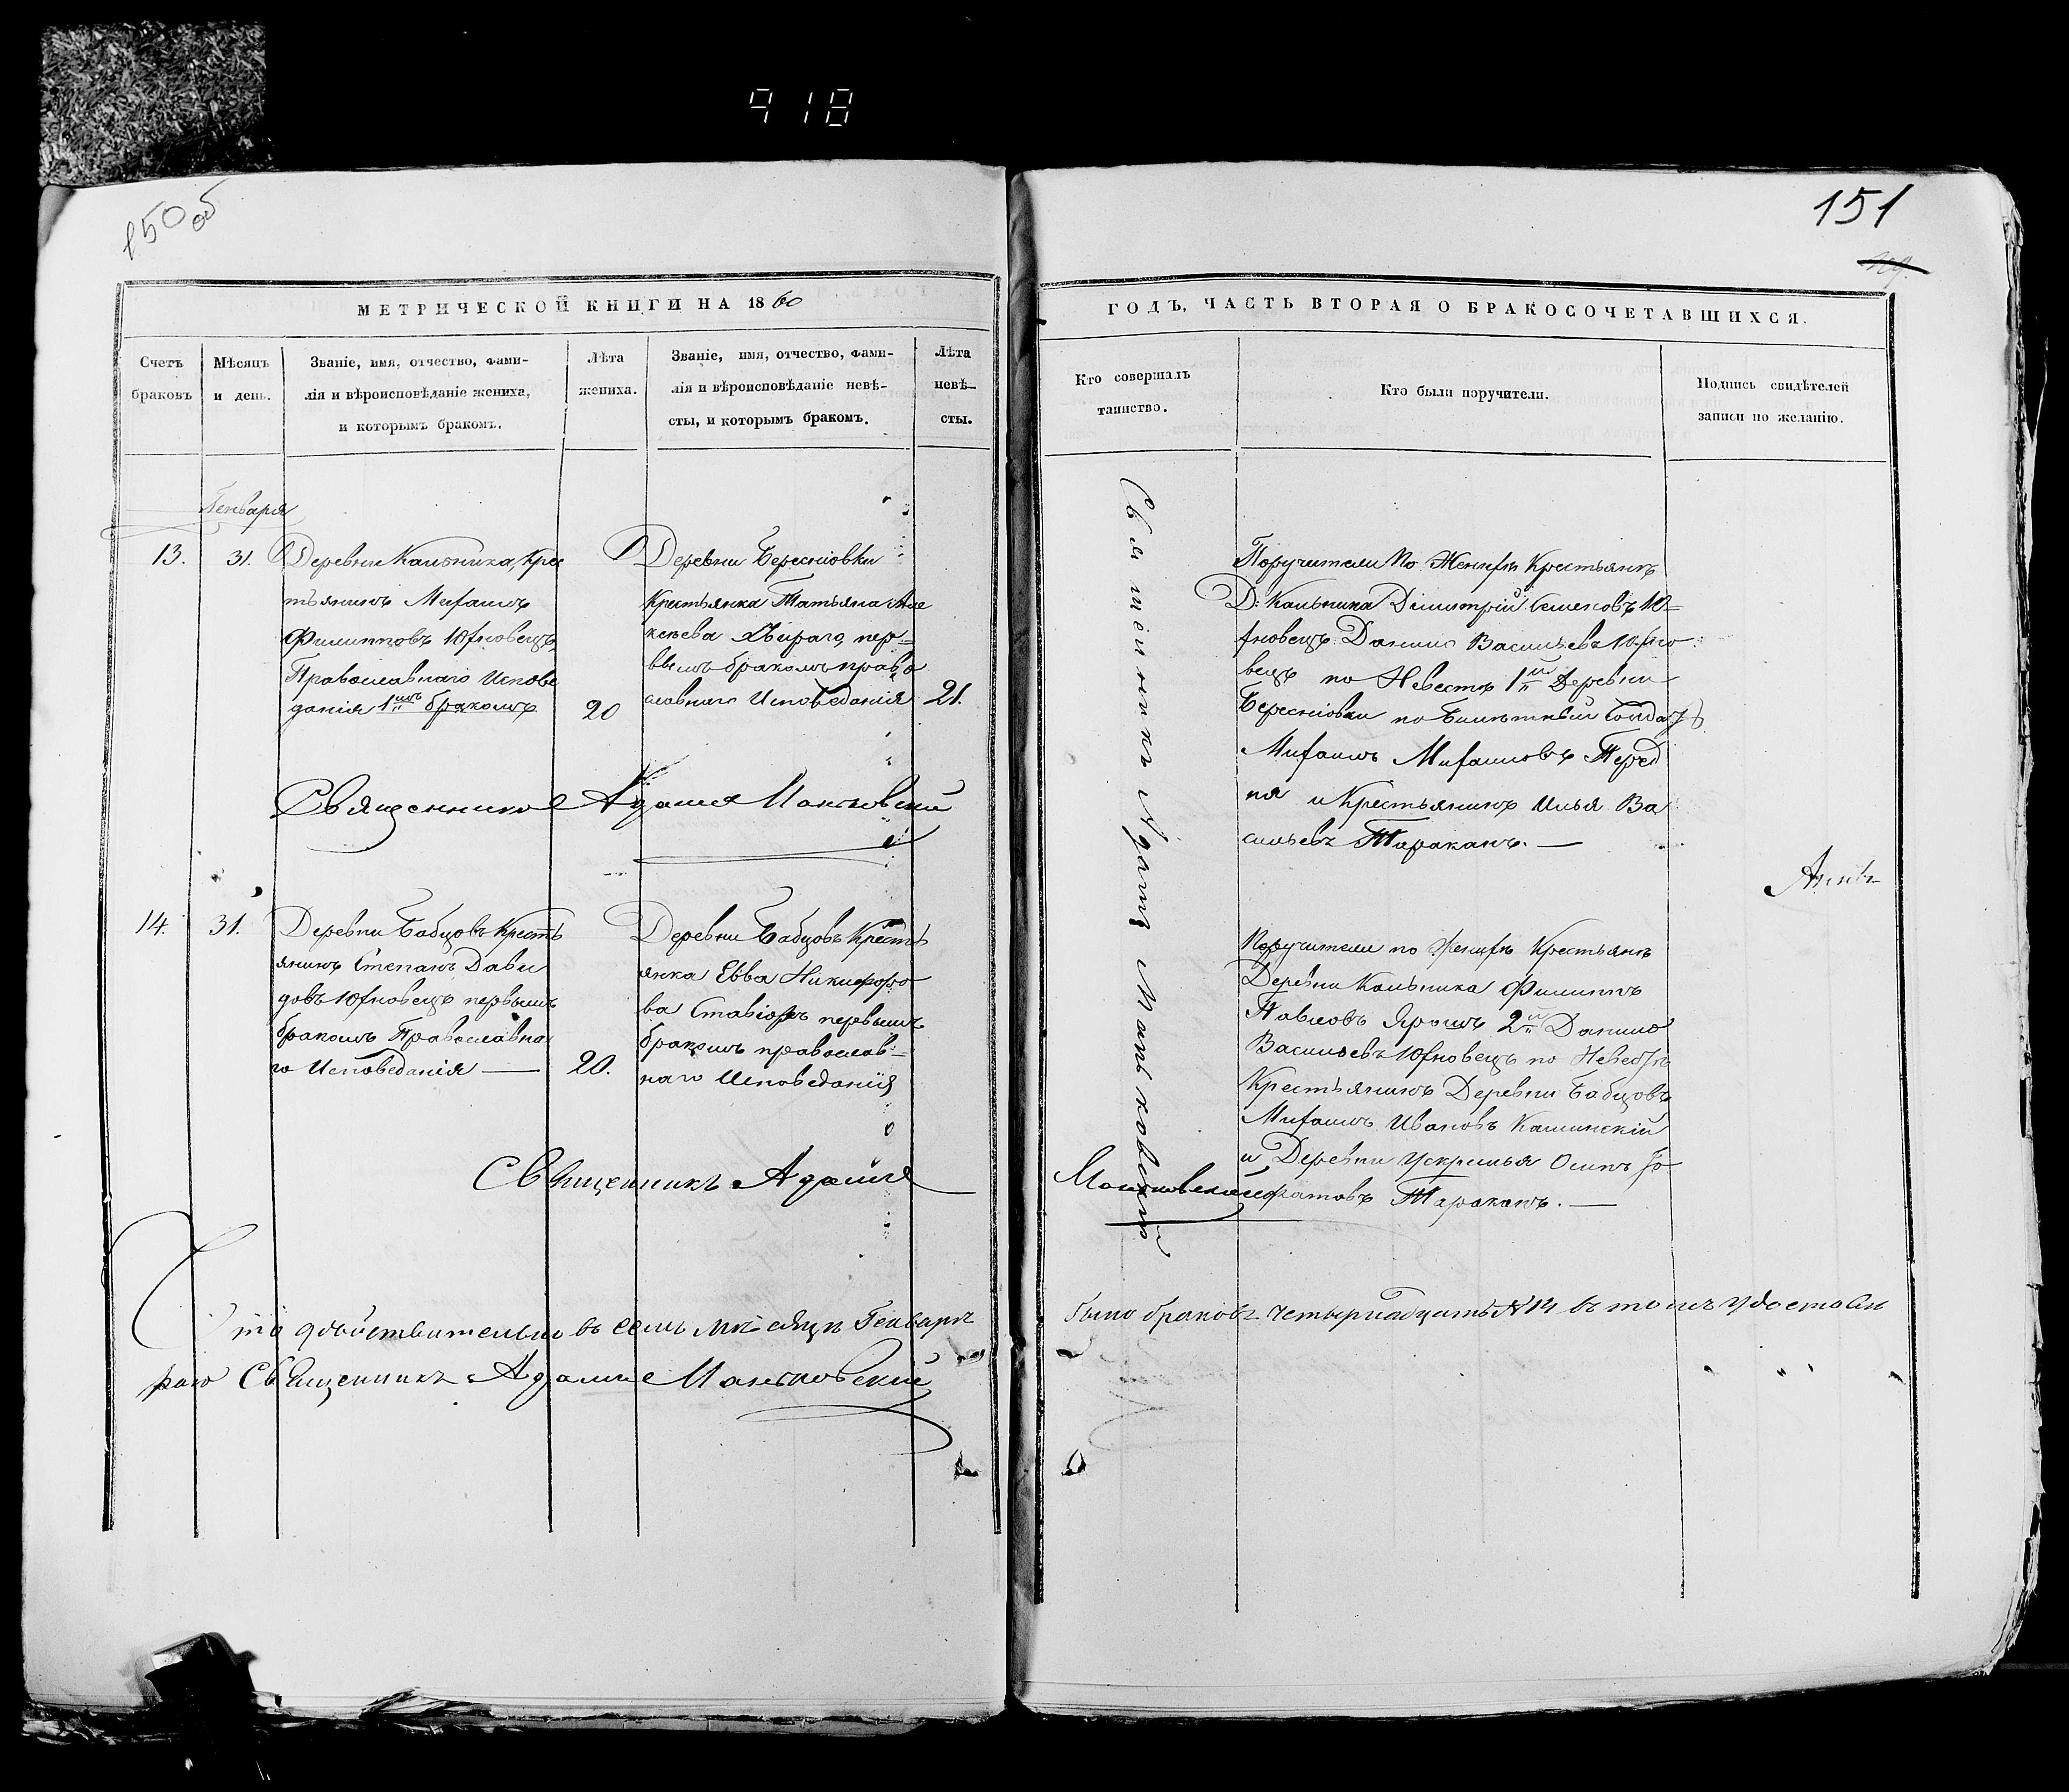 918
150 об
151
МЕТРИЧЕСКОЙ КНИГИ НА 1860
ГОДЪ, ЧАСТЬ ВТОРАЯ О БРАКОСОЧЕТАВШИХСЯ.
Счетъ
браковъ
Мѣсяцъ
и день.
Званіе, имя, отчество, фами-
лія и вѣроисповѣданіе жениха,
и которымъ бракомъ.
Лѣта
жениха.
Званіе, имя, отчество, фами-
лія и вѣроисповѣданіе невѣ-
сты, и которымъ бракомъ.
Лѣта
невѣ-
сты.
Кто совершалъ
таинство.
Кто были поручители.
Подпись свидѣтелей
записи по желанію.
Генваря
13.
31.
Деревни Кальника, Крес
тьянинъ Михаилъ
Филипповъ Юхновецъ,
Православнаго Испове
данія 1мъ бракомъ
20
Деревни Береснiовки
Крестьянка Татьяна
пер-
вымъ бракомъ право
славнаго Исповеданія
21.
Священникъ Адамъ Маньковскій
Священникъ Адамъ Маньковскій
Поручители По Женихѣ Крестьянъ
Д: Кальника Димитрій Семеновъ Ю-
хновецъ Данило Васильевъ Юхно
вецъ по Невестѣ 1й Деревни
Береснiовки по билетный Солдатъ
Михаилъ Михаиловъ Перед
ня и Крестьянинъ Илья Ва
сильевъ Тараканъ. —
14.
31.
Деревни Бабцовъ Кресть
янинъ Степанъ Дави
довъ Юхновецъ первымъ
бракомъ Православна
го Исповеданія —
20.
Деревни Бабцовъ Кресть
янка Евва Никифоро
ва первымъ
бракомъ православ-
наго Исповеданія
Священникъ Адамъ
Маньковскій
Поручители по Женихѣ Крестьянъ
Деревни Кальника Филиппъ
Павловъ Ярошъ 2й Данило
Васильевъ Юхновецъ по Невестѣ
Крестьянинъ Деревни Бабцовъ
Михаилъ Ивановъ Калинскій
и Деревни Ускрилья Осипъ
Тараканъ. —
Что дѣйствительно въ семъ мѣсяцѣ Генварѣ
было браковъ четырнадцать №14 въ томъ удостовѣ
раю Священникъ Адамъ Маньковскій